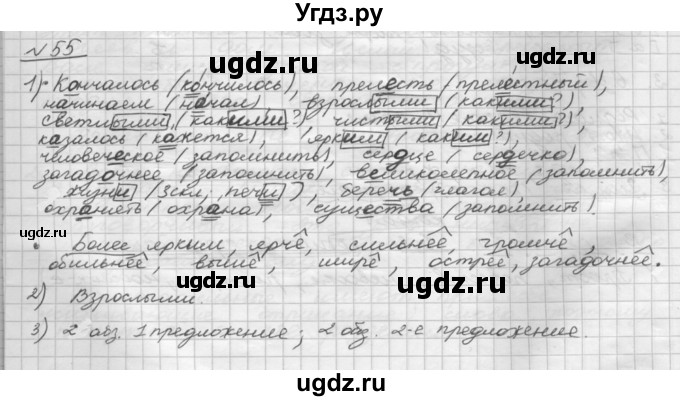 Угдз.ру
№55
1) Кончалось (кончилось), прелесть (прелестный),
начинаем (начал), взрослыми (какими?)
светлыми, (какими?) чистыми (какими?),
казалось (кажется), ярким (каким?),
человеческое (запомнить), сердце (сердечко),
загадочнее (запомнить), великолепное (запомнить),
жизни (3скл., печи), беречь (глагол),
охранять (охрана), существа (запомнить).
Более ярким, ярче, сильнее, громче,
обильнее, выше, шире, острее, загадочнее.
2) Взрослыми.
3) 2 абз. 1 предложение; 2 абз. 2-е предложение.
ugdz.ru
ugdz.ru
ugdz.ru
ugdz.ru
ugdz.ru
ugdz.ru
ugdz.ru
ugdz.ru
ugdz.ru